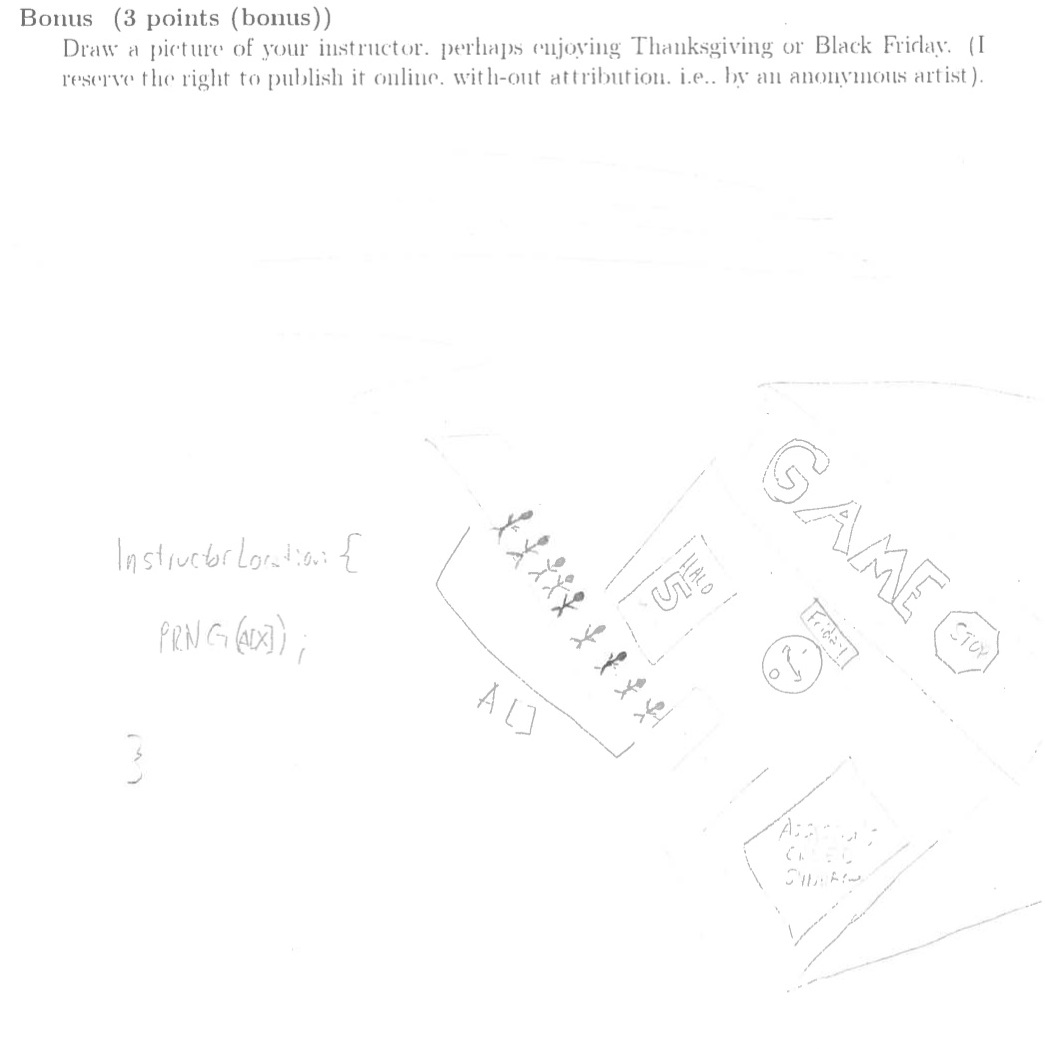 Bonus (3 points (bonus))
Draw a picture of your instructor. perhaps enjoying Thanksgiving or Black Friday. (I
reserve the right to publish it online. with-out attribution. i.e.. by an anonymous artist).
GAME
STOP
HALO
5
Friday!
Instructor Location {
PRNG(A[X]);
}
A[]